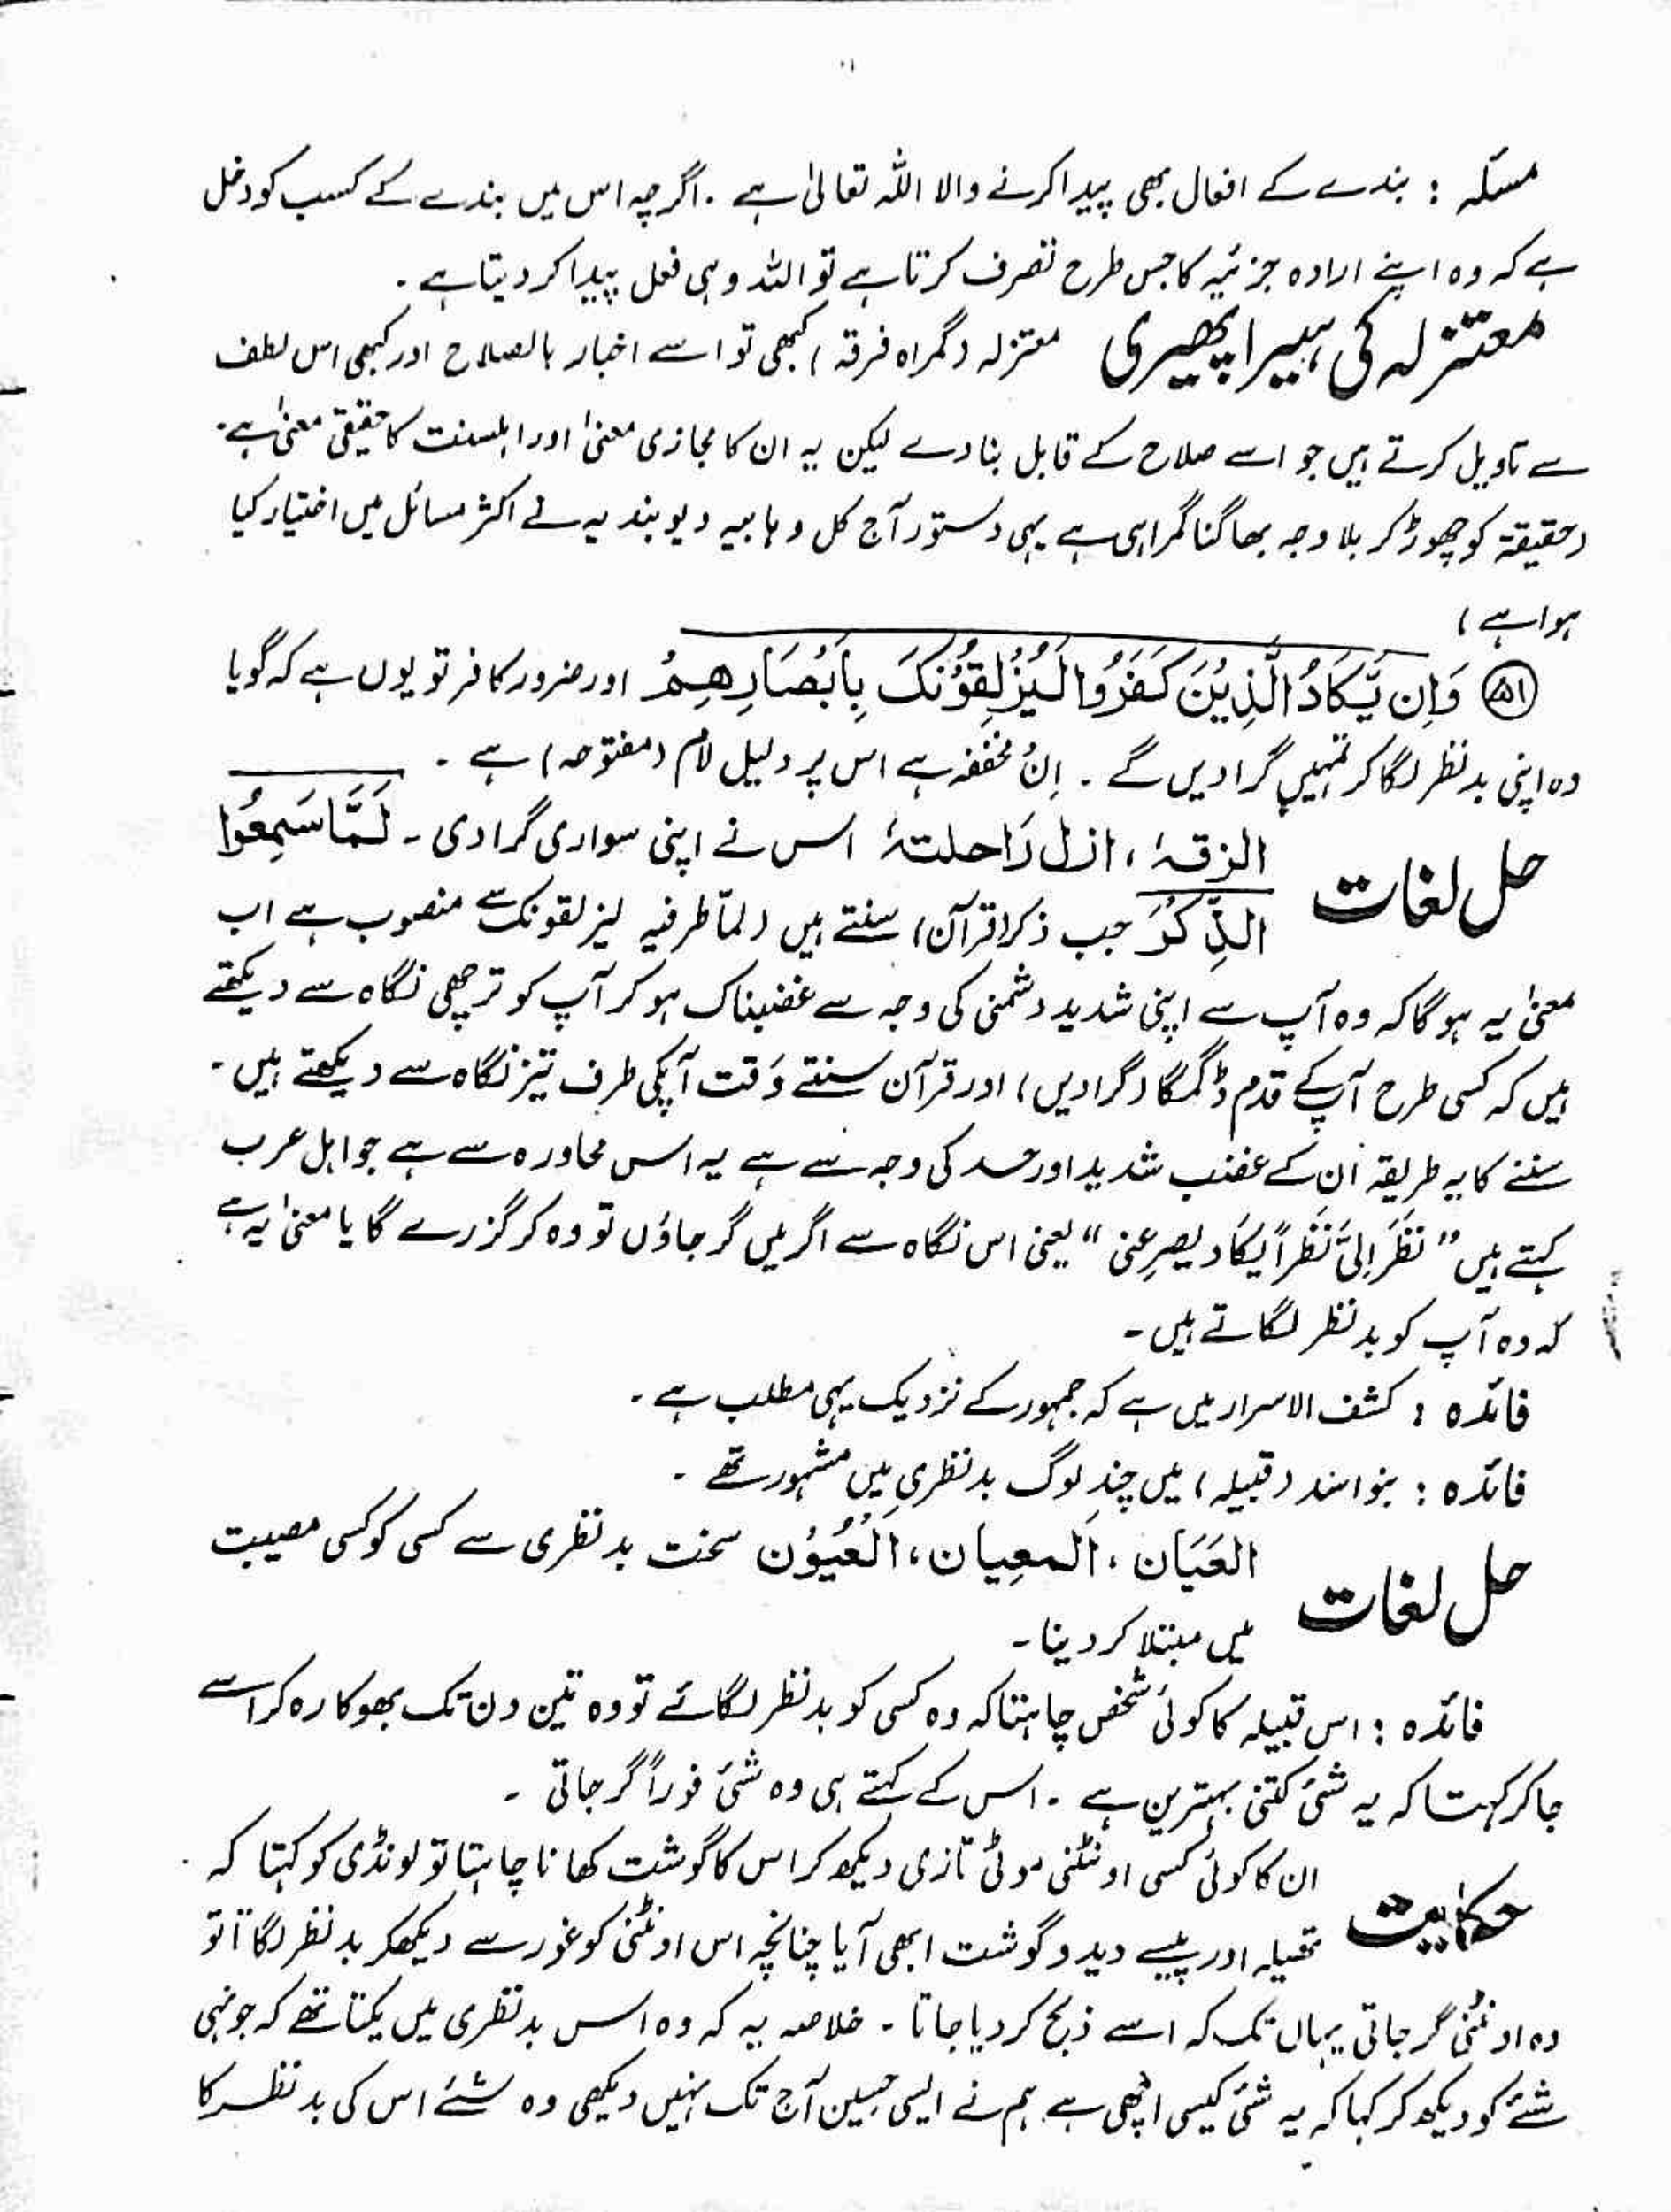 مسئلہ : بندے کے افعال بھی پیدا کرنے والا اللہ تعالیٰ ہے ۔ اگرچہ اس میں بندے کے کسب کو دخل
ہے کہ وہ اپنے ارادہ جزئیہ کا جس طرح تصرف کرتا ہے تو اللہ وہی فعل پیدا کر دیتا ہے ۔
معتزلہ کی ہیرا پھیری معتزلہ (گمراہ فرقہ) کبھی تو اسے اخبار بالصلاح اور کبھی اس لطف
سے تاویل کرتے ہیں جو اسے صلاح کے قابل بنا دے لیکن یہ ان کا مجازی معنیٰ اور اہلسنت کا حقیقی معنیٰ ہے ۔
(حقیقۃ کو چھوڑ کر بلا وجہ بھاگنا گمراہی ہے یہی دستور آج کل وہابیہ دیوبندیہ نے اکثر مسائل میں اختیار کیا
ہوا ہے)
۵۱ وَاِن يَّكَادُ الَّذِيْنَ كَفَرُوا لَيُزْلِقُوْنَكَ بِاَبْصَارِهِمْ اور ضرور کافر تو یوں ہے کہ گویا
وہ اپنی بدنظر لگا کر تمہیں گرا دیں گے ۔ اِنْ مخففہ ہے اس پر دلیل لام (مفتوحہ) ہے ۔
حل لغات الزقہٗ ، ازل رَاحلتہٗ اس نے اپنی سواری گرا دی ۔ لَمَّا سَمِعُوا
الذِّكْرَ جب ذکر (قرآن) سنتے ہیں (لمّا ظرفیہ لیزلقونک سے منصوب ہے اب
معنیٰ یہ ہوگا کہ وہ آپ سے اپنی شدید دشمنی کی وجہ سے غضبناک ہو کر آپ کو ترچھی نگاہ سے دیکھتے
ہیں کہ کسی طرح آپ کے قدم ڈگمگا (گرا دیں) اور قرآن سنتے وقت آپکی طرف تیز نگاہ سے دیکھتے ہیں ۔
سننے کا یہ طریقہ ان کے غضب شدید اور حسد کی وجہ سے ہے یہ اس محاورہ سے ہے جو اہل عرب
کہتے ہیں ”نَظَرَ اِلَیَّ نَظَراً یَکَاد یصرِعنی“ یعنی اس نگاہ سے اگر میں گر جاؤں تو وہ کر گزرے گا یا معنیٰ یہ ہے
کہ وہ آپ کو بدنظر لگاتے ہیں ۔
فائدہ : کشف الاسرار میں ہے کہ جمہور کے نزدیک یہی مطلب ہے ۔
فائدہ : بنو اسد (قبیلہ) میں چند لوگ بدنظری میں مشہور تھے ۔
حل لغات العَیَان ، اَلمعِیان ، اَلْعُیوُن سخت بدنظری سے کسی کو کسی مصیبت
میں مبتلا کر دینا ۔
فائدہ : اس قبیلہ کا کوئی شخص چاہتا کہ وہ کسی کو بدنظر لگائے تو وہ تین دن تک بھوکا رہ کر اسے
جا کر کہتا کہ یہ شئ کتنی بہترین ہے ۔ اس کے کہتے ہی وہ شئ فوراً گر جاتی ۔
حکایت ان کا کوئی کسی اونٹنی موٹی تازی دیکھ کر اس کا گوشت کھانا چاہتا تو لونڈی کو کہتا کہ
تھیلہ اور پیسے دیدو گوشت ابھی آیا چنانچہ اس اونٹنی کو غور سے دیکھکر بدنظر لگاتا تو
وہ اونٹنی گر جاتی یہاں تک کہ اسے ذبح کر دیا جاتا ۔ خلاصہ یہ کہ وہ اس بدنظری میں یکتا تھے کہ جونہی
شئے کو دیکھ کر کہا کہ یہ شئ کیسی اچھی ہے ہم نے ایسی حسین آج تک نہیں دیکھی وہ شئے اس کی بدنظر کا